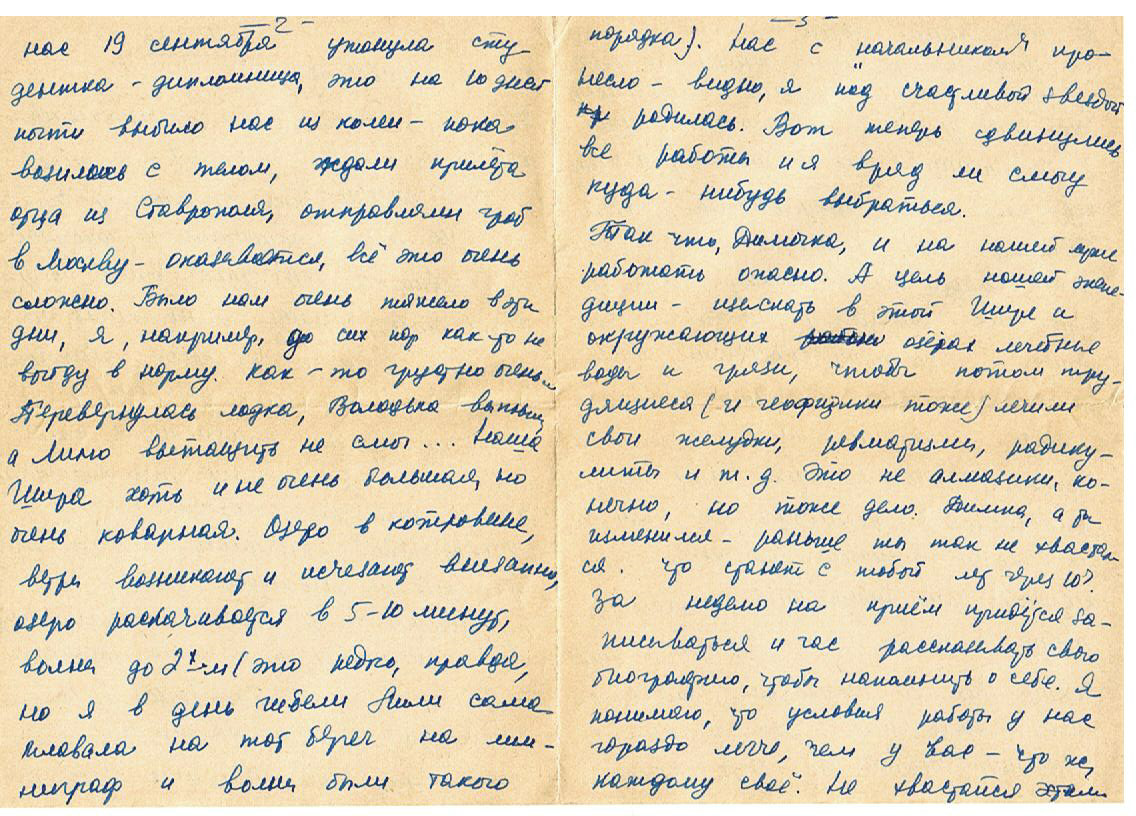 – 2 –
нас 19 сентября утонула сту
дентка – дипломница, это на 10 дней
почти выбило нас из колеи – пока
возились с телом, ждали прилёта
отца из Ставрополя, отправляли гроб
в Москву – оказывается, всё это очень
сложно. Было нам очень тяжело в эти
дни, я, например, до сих пор как-то не
войду в норму. Как-то грустно очень.
Перевернулась лодка, Володька выплыл,
а Лилю вытащить не смог... Наша
Шира хоть и не очень большая, но
очень коварная. Озеро в котловине,
ветры возникают и исчезают внезапно,
озеро раскачивается в 5-10 минут,
волны до 2х м (это редко, правда,
но я в день гибели Лили сама
плавала на тот берег на лим-
ниграф и волны были такого
– 3 –
порядка). Нас с "начальником" про-
несло – видно, я под счастливой звездой
родилась. Вот теперь сдвинулись
все работы и я вряд ли смогу
куда-нибудь выбраться.
Так что, Димочка, и на нашей суше
работать опасно. А цель нашей экспе-
диции – изыскать в этой Шире и
окружающих озёрах лечебные
воды и грязи, чтобы потом тру-
дящиеся (и геофизики тоже) лечили
свои желудки, ревматизмы, радику-
литы и т.д. Это не алмазики, ко-
нечно, но тоже дело. Димка, а ты
изменился – раньше ты так не хвастал-
ся. Что станет с тобой лет через 10?
За неделю на приём придётся за-
писываться и час рассказывать свою
биографию, чтобы напомнить о себе. Я
понимаю, что условия работы у нас
гораздо легче, чем у вас – что ж,
каждому своё. Не хвастайся этим